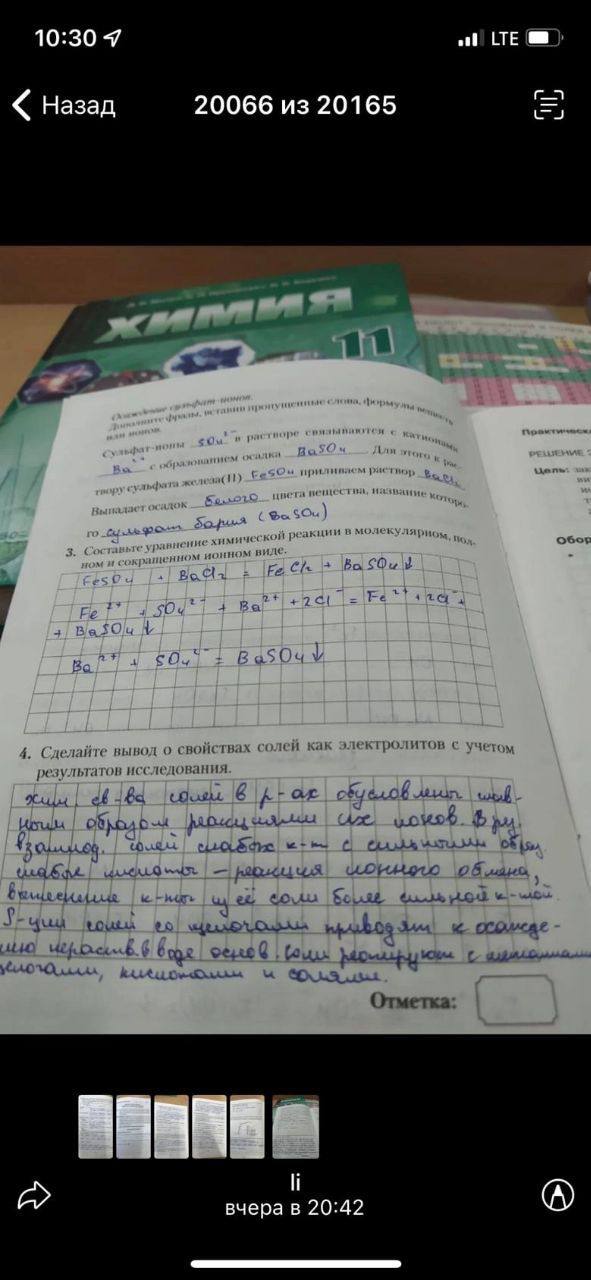 10:30
LTE
Назад
20066 из 20165
ХИМИЯ
11
Осаждение сульфат-ионов.
Дополните фразы, вставив пропущенные слова, формулы веществ
или ионов.
Сульфат-ионы SO₄²⁻ в растворе связываются с катионами
Ba²⁺ с образованием осадка BaSO₄. Для этого к рас-
твору сульфата железа(II) FeSO₄ приливаем раствор BaCl₂
Выпадает осадок белого цвета вещества, название которо-
го сульфат бария (BaSO₄)
3. Составьте уравнение химической реакции в молекулярном, пол-
ном и сокращенном ионном виде.
FeSO₄ + BaCl₂ = FeCl₂ + BaSO₄↓
Fe²⁺ + SO₄²⁻ + Ba²⁺ + 2Cl⁻ = Fe²⁺ + 2Cl⁻ +
+ BaSO₄↓
Ba²⁺ + SO₄²⁻ = BaSO₄↓
4. Сделайте вывод о свойствах солей как электролитов с учетом
результатов исследования.
Хим. св-ва солей в р-ах обусловлены глав-
ным образом реакциями их ионов. В рез.
взаимод. солей слабых к-т с сильными образ.
слабые кислоты – реакция ионного обмена,
вытеснение к-ты из её соли более сильной к-той.
Р-ции солей со щелочами приводят к осажде-
нию нераств. в воде основ. Соли реагируют с металлами
щелочами, кислотами и солями.
Отметка:
Практическ
РЕШЕНИЕ
Цель:
Обор
li
вчера в 20:42